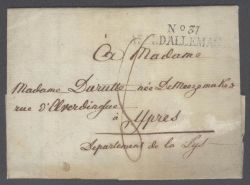 No 37
DALLEMA
à Madame
Madame Durutte née DeMeezemaker
rue d'Elverdingue
à Ypres
Departement de la Lys